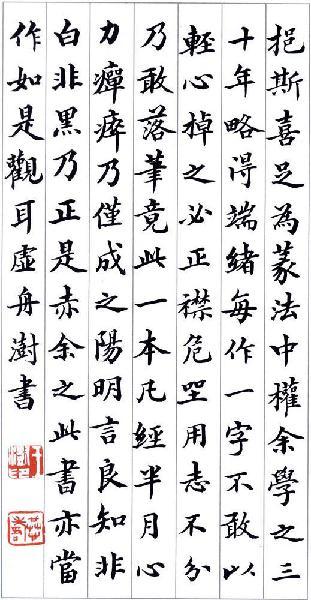 挹斯喜足為篆法中權余學之三
十年略得端緒每作一字不敢以
輕心掉之必正襟危坐用志不分
乃敢落筆竟此一本凡經半月心
力癉瘁乃僅成之陽明言良知非
白非黑乃正是赤余之此書亦當
作如是觀耳虛舟澍書